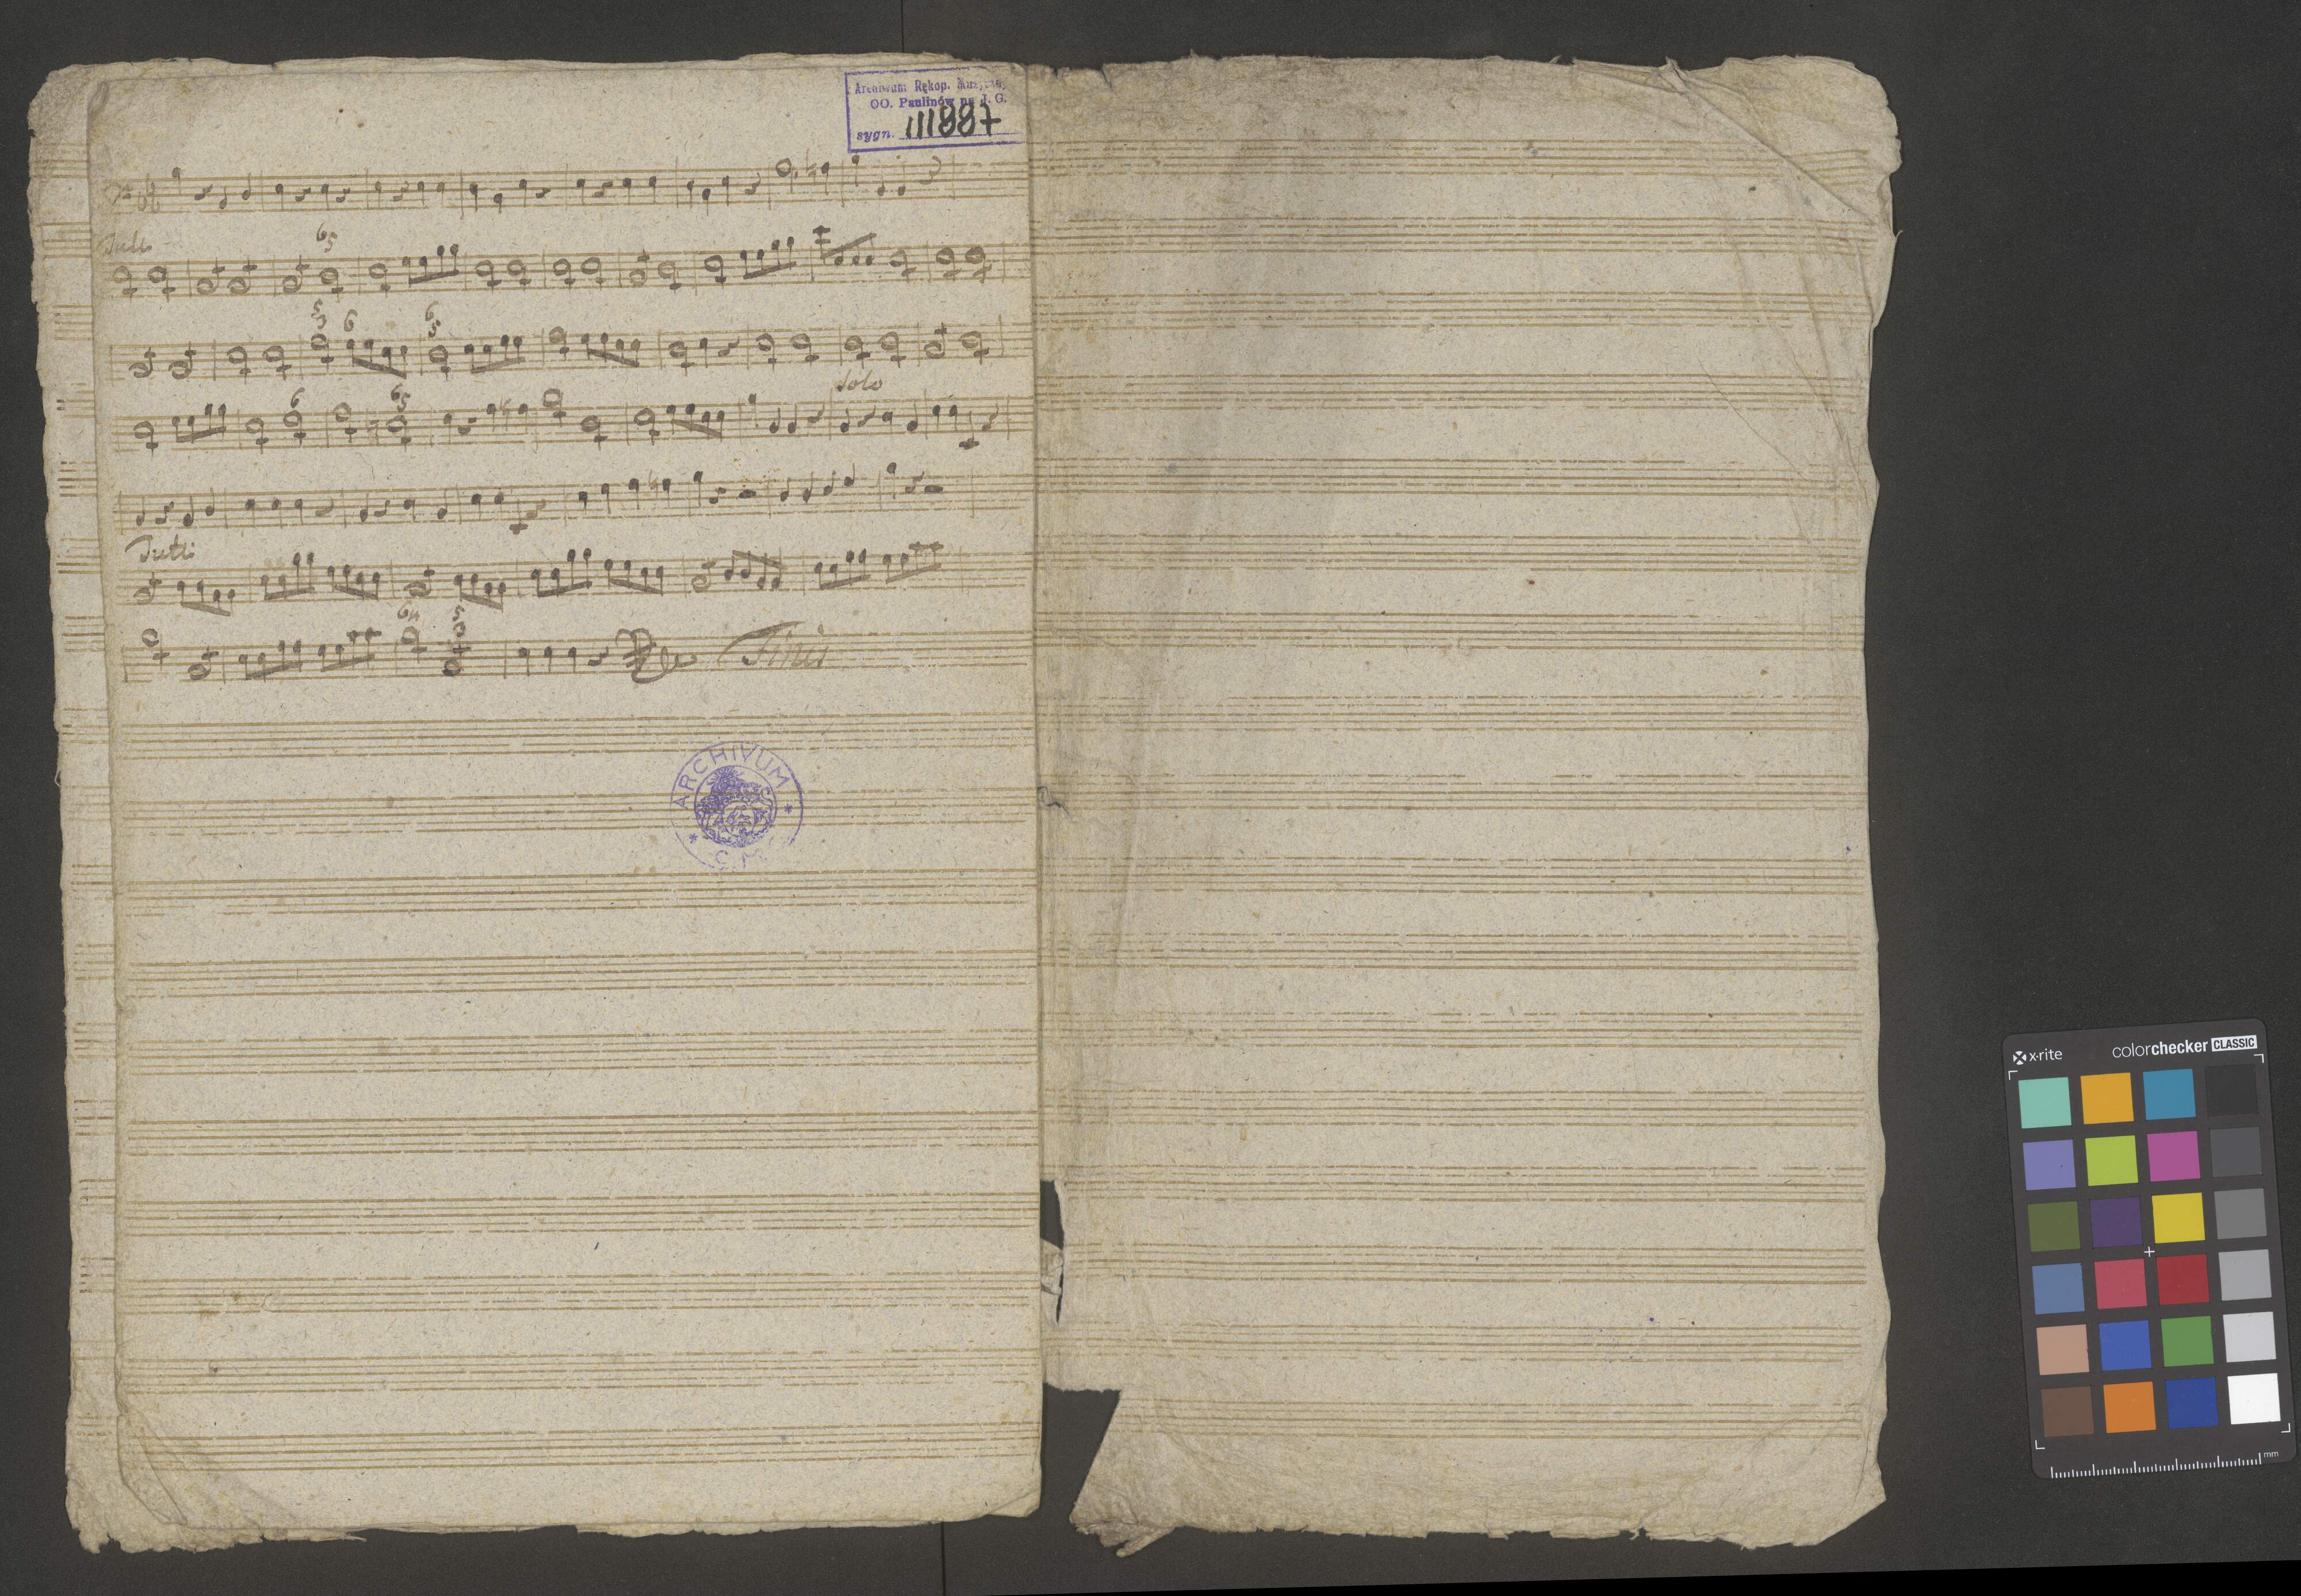 Archiwum Rękop. Muzyczn.
OO. Paulinów na J. G.
sygn. III 887
Tutti
6 5
5 3 6 6 5
Solo
6 6 5
Tutti
6 4 5 3
Finis
ARCHIVUM
C M
x·rite colorchecker CLASSIC
mm